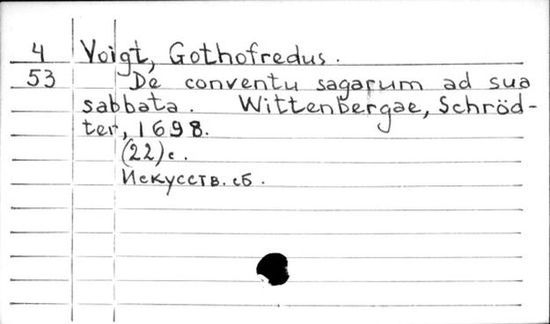 4 Voigt, Gothofredus.
53 De conventu sagarum ad sua
sabbata. Wittenbergae, Schröd-
ter, 1698.
(22) с.
Искусств. сб.